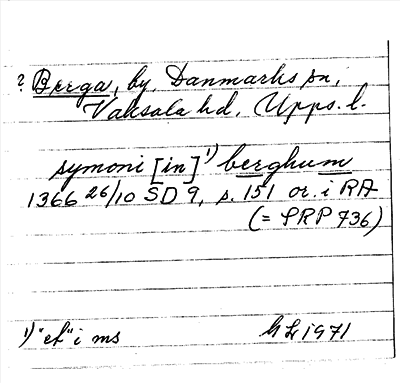 ? Berga, by, Danmarks sn,
Vaksala hd, Upps. l.
symoni [in]¹⁾ berghum
1366 26/10 SD 9, s. 151 or. i RA
(= SRP 736)
1) "et" i ms
GL 1971